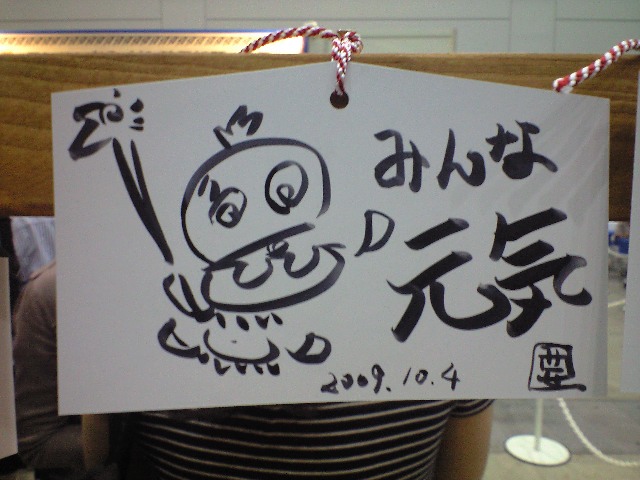 みんな
元気
2009.10.4